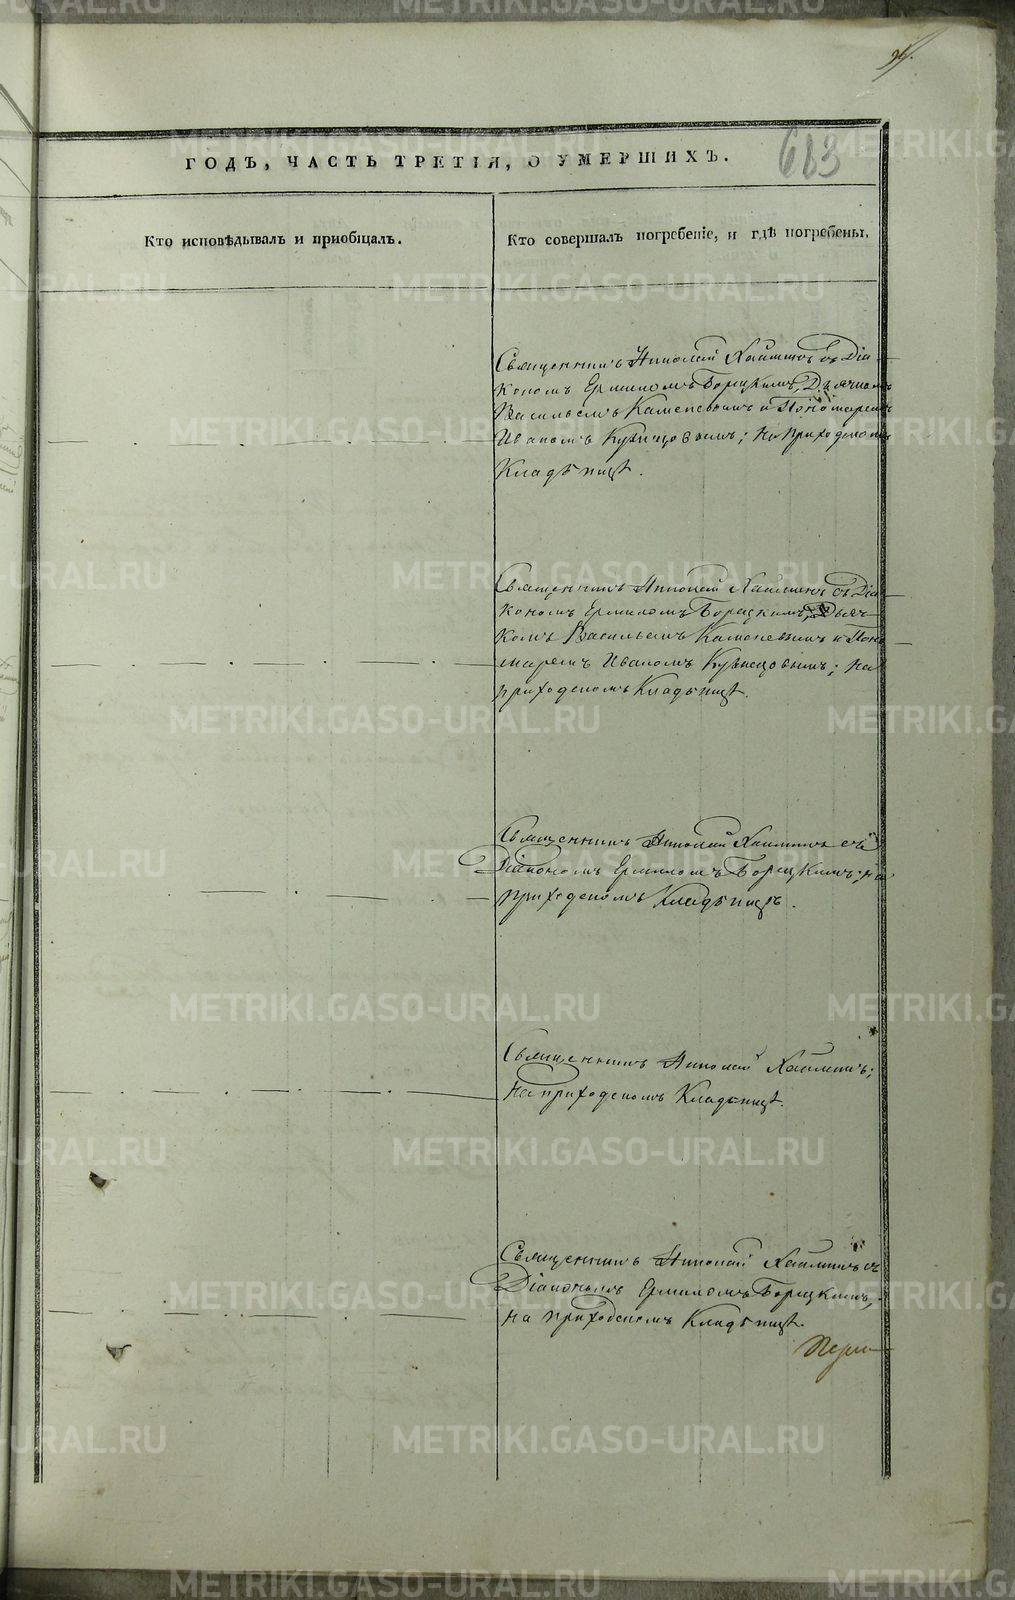 613
ГОДЪ, ЧАСТЬ ТРЕТІЯ, О УМЕРШИХЪ.
Кто исповѣдывалъ и пріобщалъ.
Кто совершалъ погребеніе, и гдѣ погребены.
Священникъ Николай Хаймин съ Діа-
кономъ Ермиломъ Борецкимъ, Дьячкомъ
Васильемъ Каменевымъ и Пономаремъ
Иваномъ Кузнецовымъ; на приходскомъ
Кладбищѣ.
Священникъ Николай Хайминъ съ Діа-
кономъ Ермиломъ Борецкимъ, Дьяч-
комъ Васильемъ Каменевымъ и Поно-
маремъ Иваномъ Кузнецовымъ; на
приходскомъ Кладбищѣ.
Священникъ Николай Хайминъ съ
Діакономъ Ермиломъ Борецкимъ; на
приходскомъ Кладбищѣ.
Священникъ Николай Хайминъ;
на приходскомъ Кладбищѣ.
Священникъ Николай Хайминъ съ
Діакономъ Ермиломъ Борецкимъ,
на приходскомъ Кладбищѣ.
METRIKI.GASO-URAL.RU